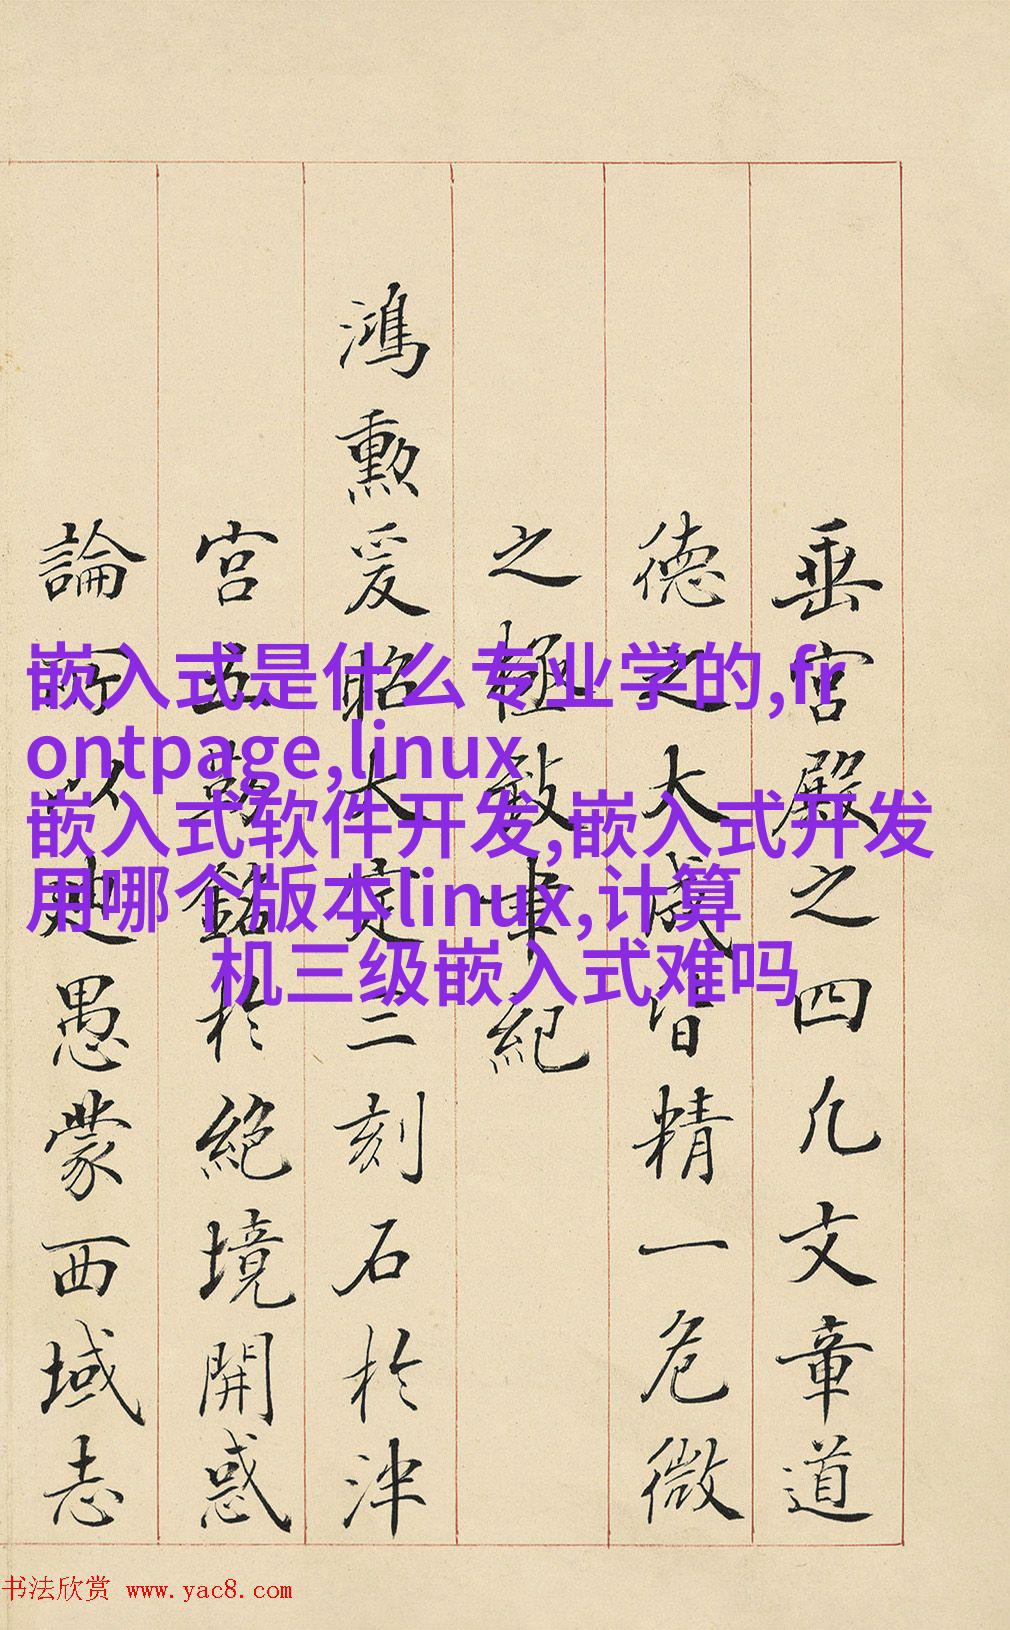 垂宮殿之四文章道
德之大成皆精一危微
之極紀
鴻勳爰昭大定三刻石於津
宮五勒銘於絕境開惑
論所以廸愚蒙西域志
嵌入式是什么专业学的,fr
ontpage,linux
嵌入式软件开发,嵌入式开发
用哪个版本linux,计算
机三级嵌入式难吗
书法欣赏 www.yac8.com